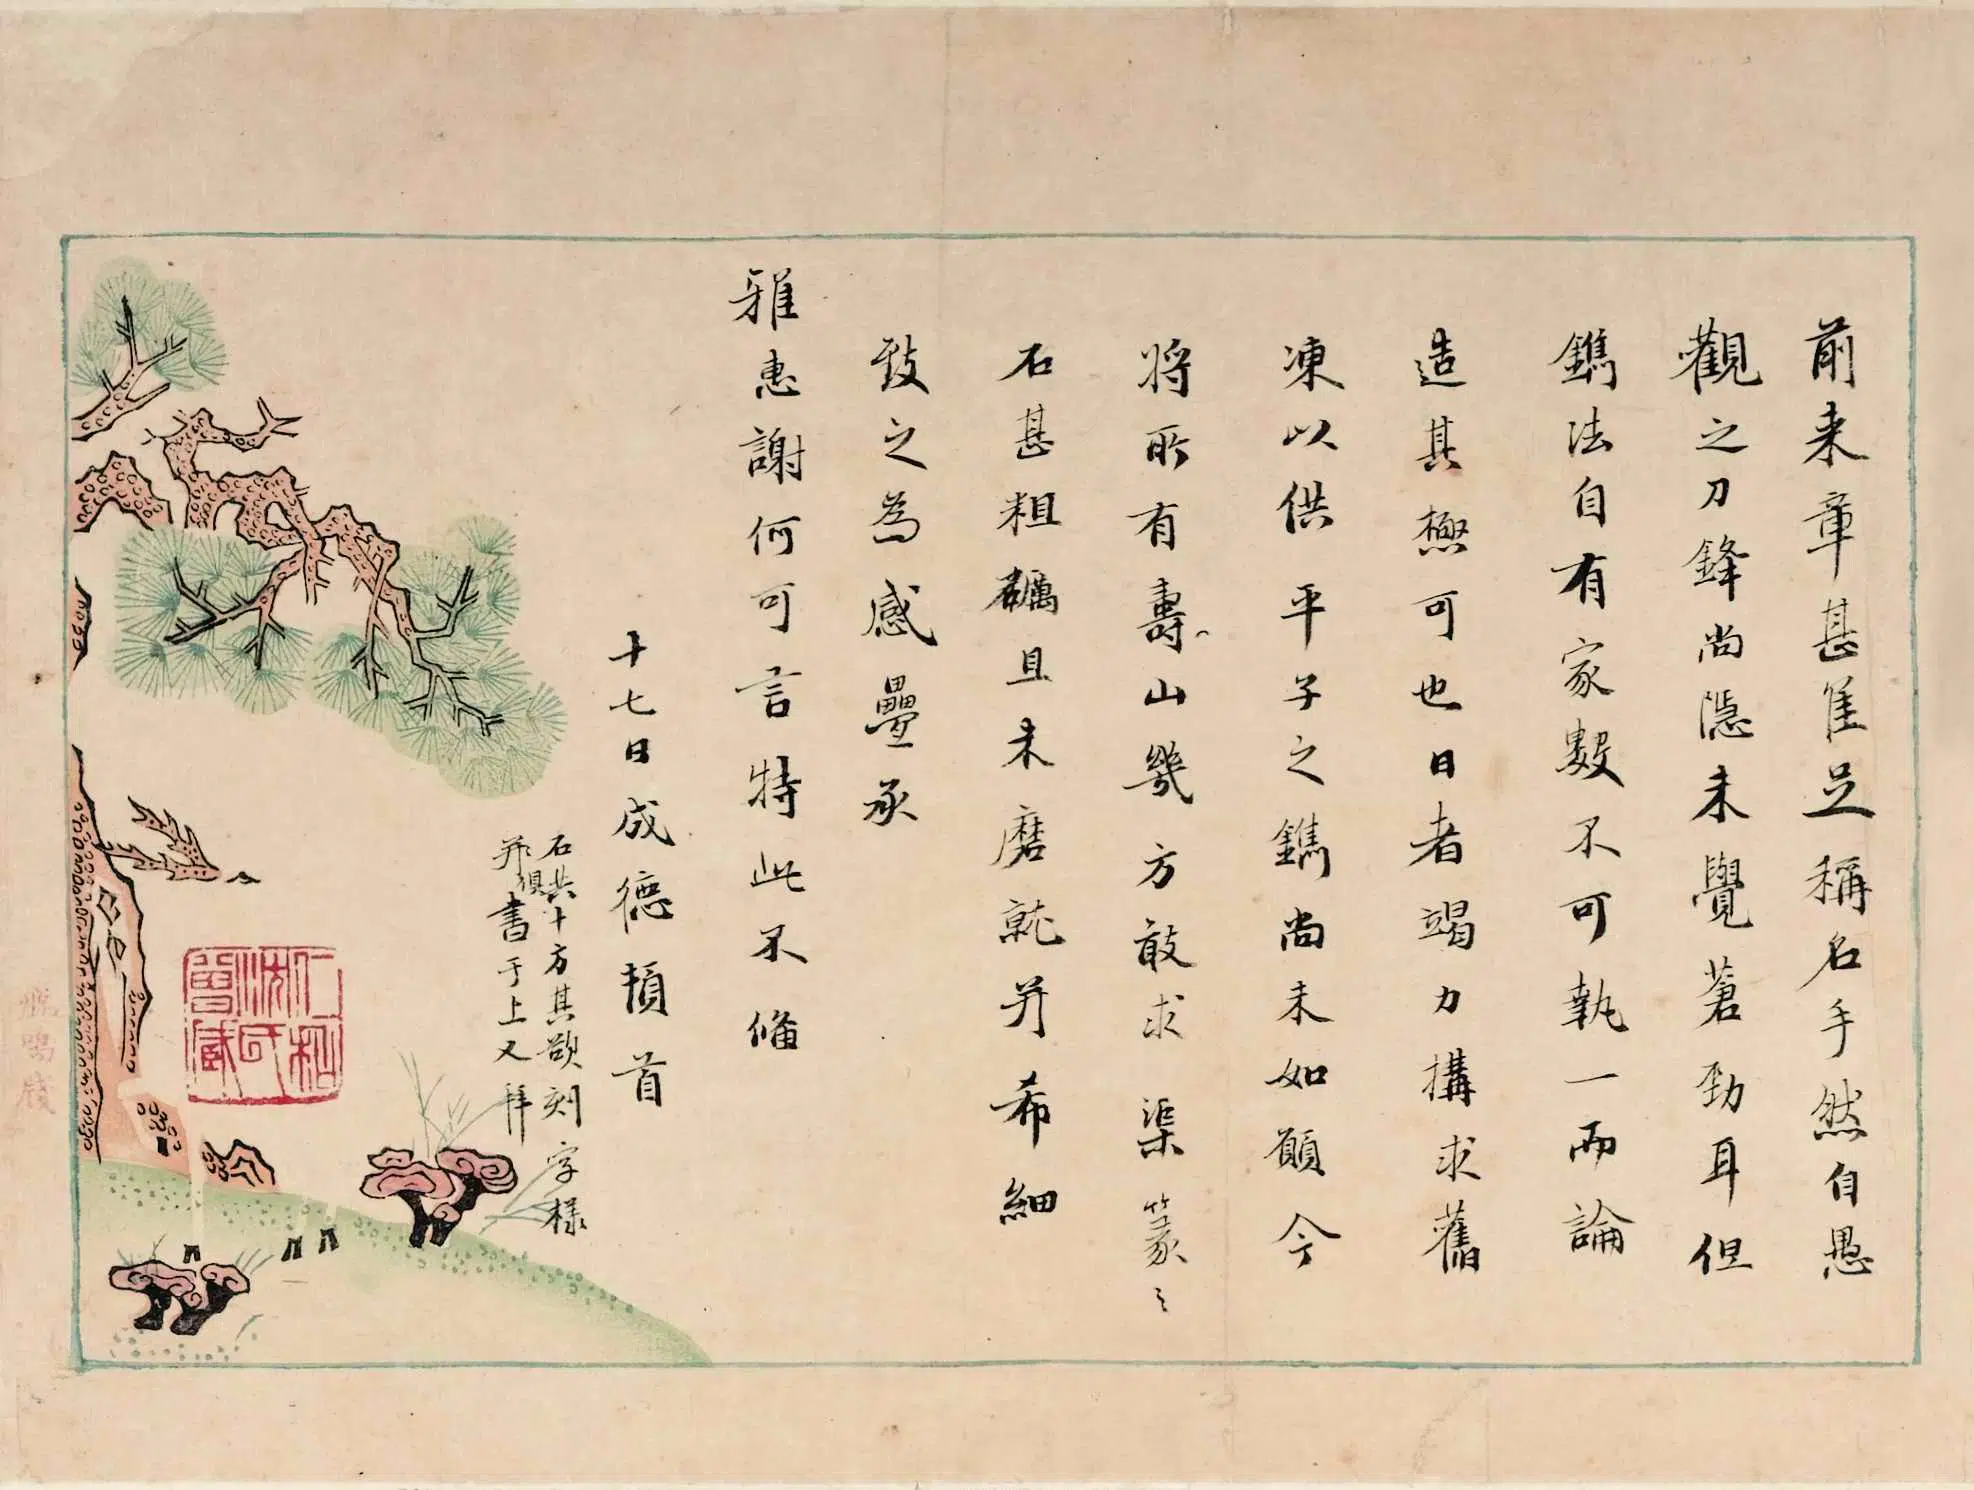 前来章甚佳足稱名手然自愚
觀之刀鋒尚隱未覺蒼勁耳但
鐫法自有家數不可執一而論
造其極可也日者竭力構求舊
凍以供平子之鐫尚未如願今
将所有壽山幾方敢求渠篆之
石甚粗礪且未磨就并希細
致之為感疊承
雅惠謝何可言特此不備
十七日成德頓首
石共十方其欲刻字樣
并須書于上又拜
仁和沈氏曾藏